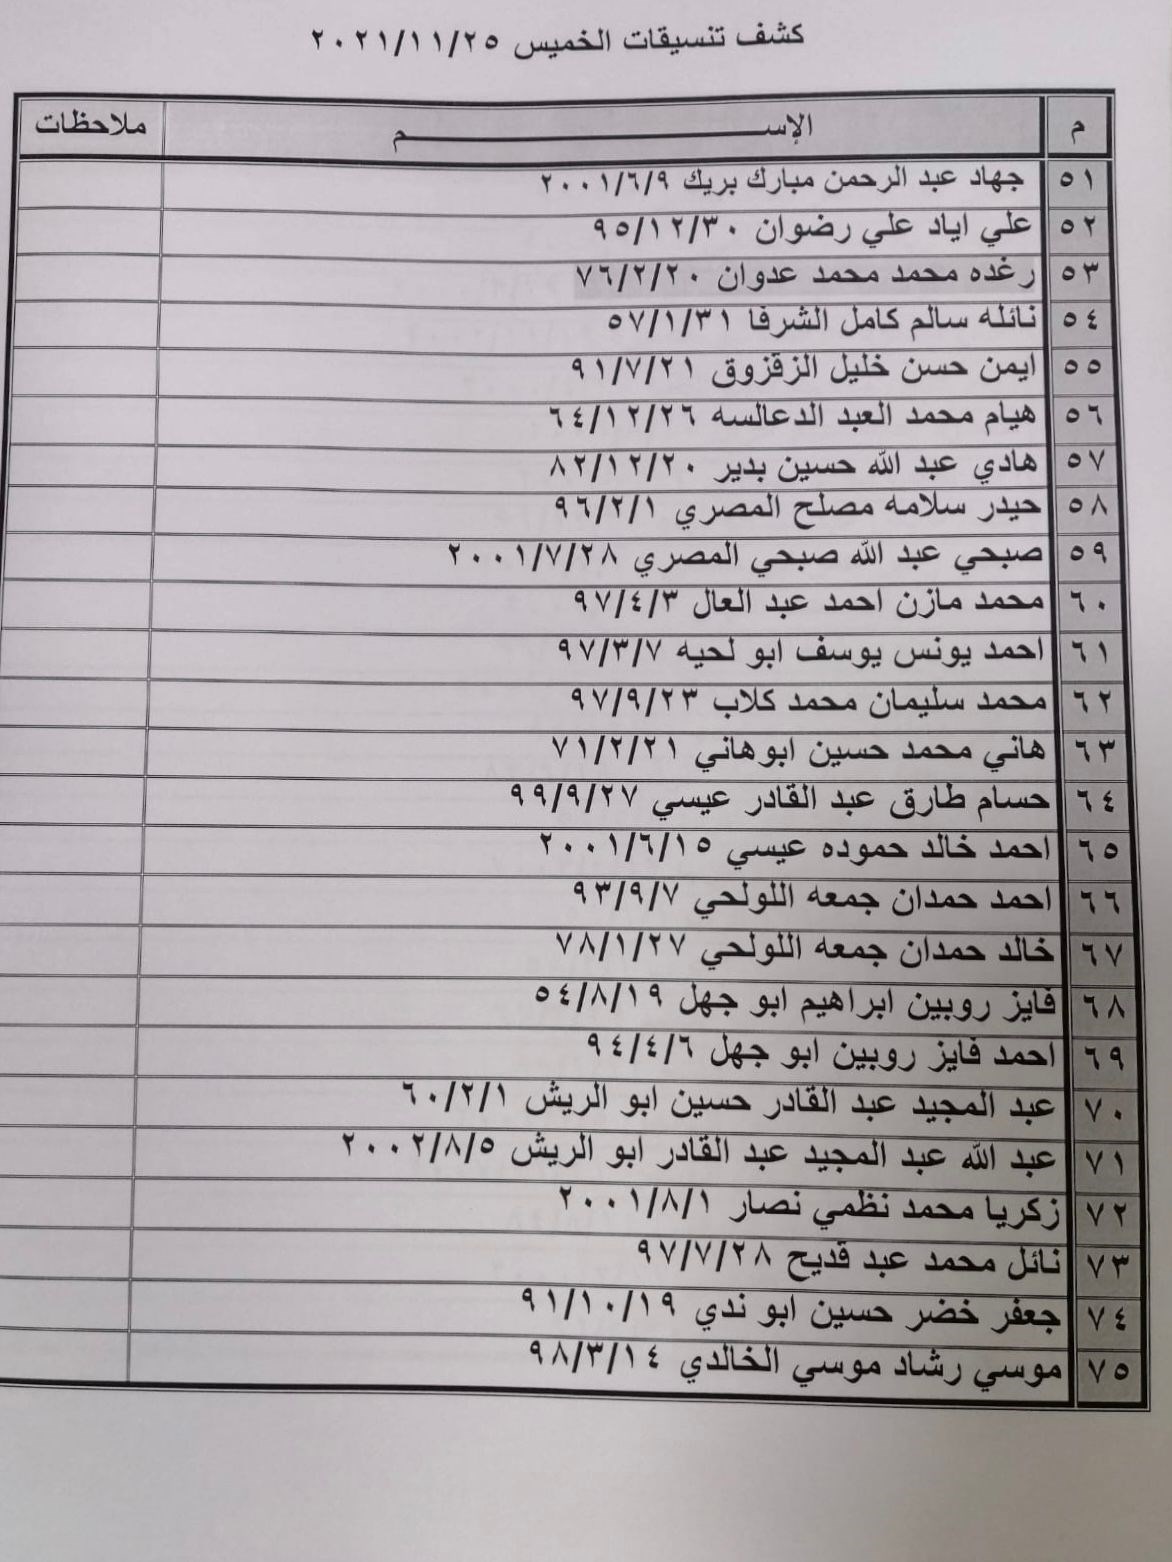 كشف تنسيقات الخميس ٢٠٢١/١١/٢٥
م الإســـــم ملاحظات
٥١ جهاد عبد الرحمن مبارك بريك ٢٠٠١/٦/٩
٥٢ علي اياد علي رضوان ٩٥/١٢/٣٠
٥٣ رغده محمد محمد عدوان ٧٦/٢/٢٠
٥٤ نائله سالم كامل الشرفا ٥٧/١/٣١
٥٥ ايمن حسن خليل الزقزوق ٩١/٧/٢١
٥٦ هيام محمد العبد الدعالسه ٦٤/١٢/٢٦
٥٧ هادي عبد الله حسين بدير ٨٢/١٢/٢٠
٥٨ حيدر سلامه مصلح المصري ٩٦/٢/١
٥٩ صبحي عبد الله صبحي المصري ٢٠٠١/٧/٢٨
٦٠ محمد مازن احمد عبد العال ٩٧/٤/٣
٦١ احمد يونس يوسف ابو لحيه ٩٧/٣/٧
٦٢ محمد سليمان محمد كلاب ٩٧/٩/٢٣
٦٣ هاني محمد حسين ابوهاني ٧١/٢/٢١
٦٤ حسام طارق عبد القادر عيسي ٩٩/٩/٢٧
٦٥ احمد خالد حموده عيسي ٢٠٠١/٦/١٥
٦٦ احمد حمدان جمعه اللولحي ٩٣/٩/٧
٦٧ خالد حمدان جمعه اللولحي ٧٨/١/٢٧
٦٨ فايز روبين ابراهيم ابو جهل ٥٤/٨/١٩
٦٩ احمد فايز روبين ابو جهل ٩٤/٤/٦
٧٠ عبد المجيد عبد القادر حسين ابو الريش ٦٠/٢/١
٧١ عبد الله عبد المجيد عبد القادر ابو الريش ٢٠٠٢/٨/٥
٧٢ زكريا محمد نظمي نصار ٢٠٠١/٨/١
٧٣ نائل محمد عبد قديح ٩٧/٧/٢٨
٧٤ جعفر خضر حسين ابو ندي ٩١/١٠/١٩
٧٥ موسي رشاد موسي الخالدي ٩٨/٣/١٤